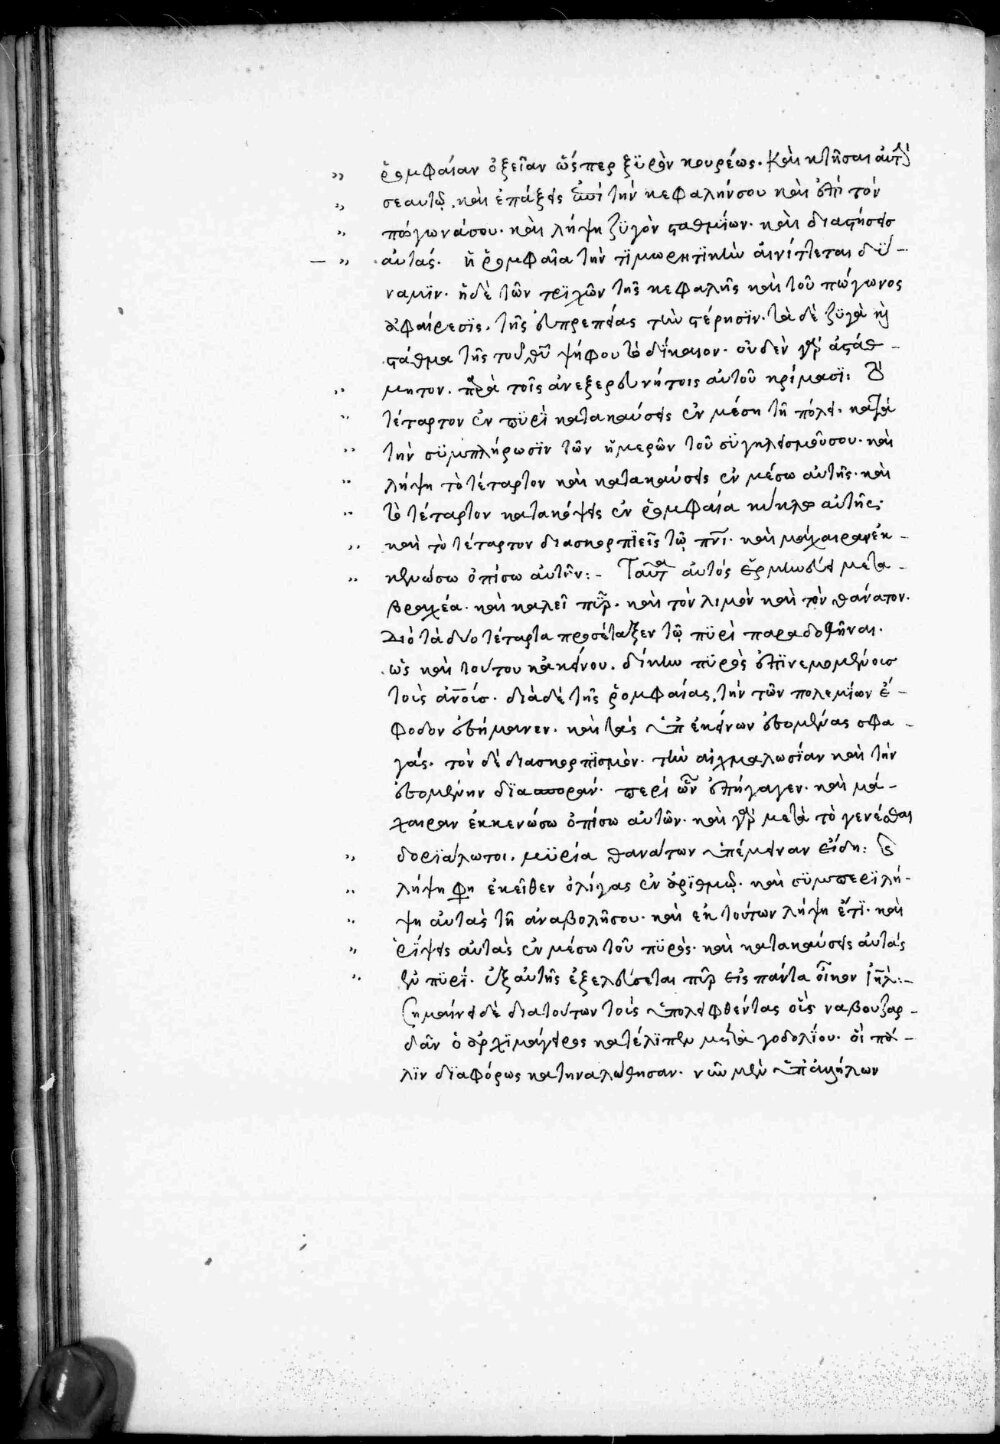 ῥομφαίαν ὀξεῖαν ὥσπερ ξϋρὸν κουρέως· καὶ κτῆσαι αὐτὴ
" σεαυτῷ, καὶ ἐπάξεις ἐπὶ τὴν κεφαλήνσου καὶ ἐπὶ τὸν
" πώγωνάσου· καὶ λήψη ζϋγὸν σταθμίων· καὶ διαστήσεις
— " αὐτάς· ἡ ῥομφαῖα τὴν τϊμωρητϊκὴν αἰνίττεται δύ-
ναμϊν· ἡδὲ τῶν τρϊχῶν τῆς κεφαλῆς καὶ τοῦ πώγωνος
ἀφαίρεσϊς, τῆς εὐπρεπείας τὴν στέρησϊν· τὰ δὲ ζϋγὰ καὶ
στάθμα τῆς τοῦ θῦ ψήφου τὸ δίκαιον· οὐδὲν γὰρ ἀστάθ-
" μητον· παρὰ τοῖς ἀνεξερευνήτοις αὐτοῦ κρίμασϊ: Τὸ
" τέταρτον ἐν πϋρὶ κατακαύσεις ἐν μέση τῆ πόλει· κατὰ
" τὴν σϋμπλήρωσϊν τῶν ἡμερῶν τοῦ σϋγκλεισμοῦσου· καὶ
" λήψη τὸ τέταρτον καὶ κατακαύσεις ἐν μέσω αὐτῆς· καὶ
" τὸ τέταρτον κατακόψεις ἐν ῥομφαία κύκλω αὐτῆς·
" καὶ τὸ τέταρτον διασκορπϊεῖς τῷ πνι· καὶ μάχαιραν ἐκ-
" κενώσω ὀπίσω αὐτῶν:- Ταῦτα αὐτὸς ἑρμηνεύει μετα-
βραχέα· καὶ καλεῖ πῦρ· καὶ τὸν λιμὸν καὶ τὸν θάνατον·
Διὸ τὰ δύο τέταρτα προσέταξεν τῷ πϋρὶ παραδοθῆναι·
ὡς καὶ τούτου κἀκείνου, δίκην πϋρὸς ἐπϊνεμομένοις
τοῖς ἀνοις· διὰδὲ τῆς ῥομφαίας, τὴν τῶν πολεμίων ἔ-
φοδον ἐσήμαινεν· καὶ τὰς ὑπ ἐκείνων ἐσομένας σφα-
γάς· τὸν δὲ διασκορπϊσμὸν· τὴν αἰχμαλωσίαν καὶ τὴν
ἐσομένην δϊασποράν· περὶ ὧν ἐπήγαγεν· καὶ μά-
χαιραν ἐκκενώσω ὀπίσω αὐτῶν· καὶ γὰρ μετὰ τὸ γενέσθαι
" δορϊάλωτοι, μϋρία θανάτων ὑπέμειναν εἴδη: Καὶ
" λήψη φη ἐκεῖθεν ὀλίγας ἐν ἀρϊθμῷ· καὶ σϋμπερϊλή-
" ψη αὐτὰς τῆ ἀναβολῆσου· καὶ ἐκ τούτων λήψη ἔτϊ· καὶ
" ῥίψεις αὐτὰς ἐν μέσω τοῦ πϋρὸς· καὶ κατακαύσεις αὐτὰς
" ἐν πϋρί· ἐξ αὐτῆς ἐξελεύσεται πῦρ εἰς πάντα οἶκον ιηλ:-
Σημαίνειδὲ διατούτων τοὺς ὑπολειφθέντας οὓς ναβουζαρ-
δὰν ὁ ἀρχϊμάγειρος κατέλϊπεν μετὰ γοδολίου· οἳ πά-
λϊν δϊαφόρως κατηναλώθησαν· νῦν μὲν ὑπ ἀλλήλων